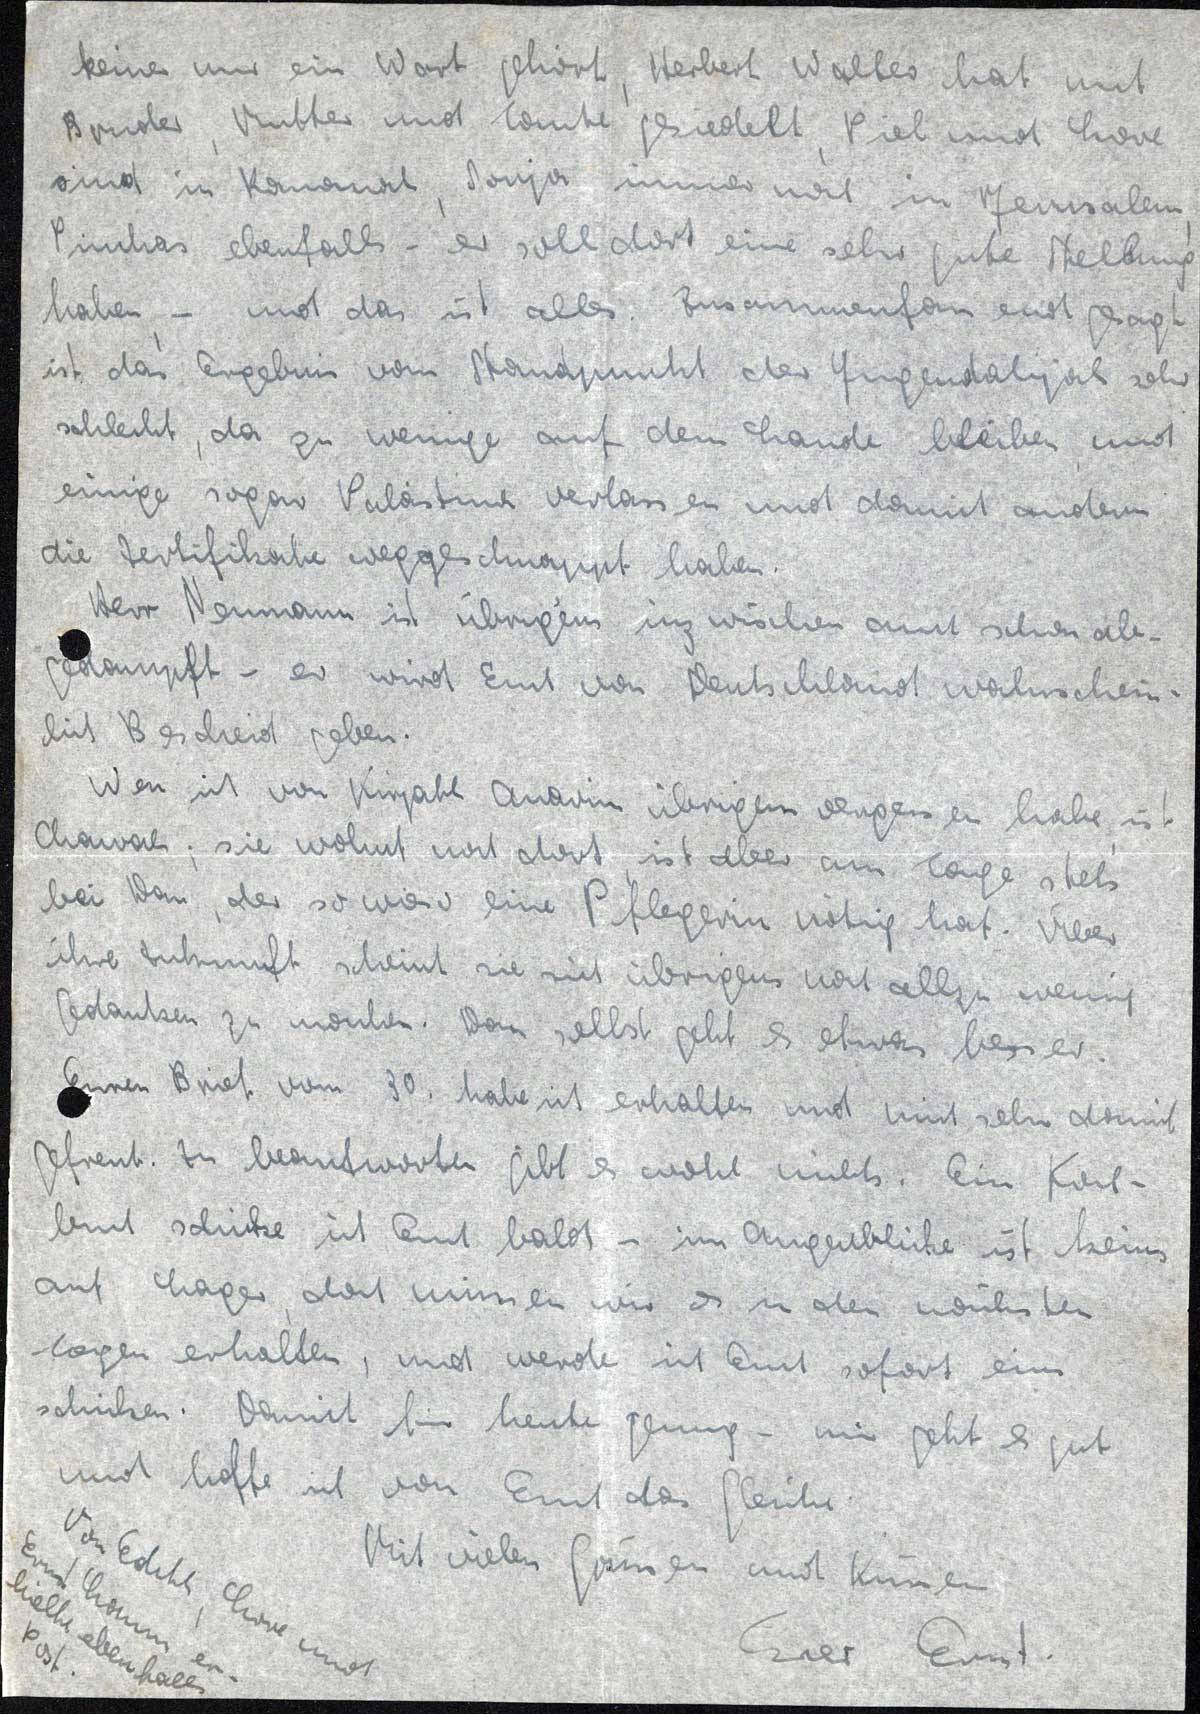 keiner nur ein Wort gehört, Herbert Walter hat mit
Bruder, Mutter und Tante gesiedelt, Piel und Lore
sind in Kananah, Sonja immer noch in Jerusalem,
Pinchas ebenfalls - er soll dort eine sehr gute Stellung
haben, - und das ist alles. Zusammenfassend gesagt
ist das Ergebnis vom Standpunkt der Jugendalijah sehr
schlecht, da zu wenige auf dem Lande bleiben und
einige sogar Palästina verlassen und damit andern
die Zertifikate weggeschnappt haben.
Herr Neumann ist übrigens inzwischen auch schon ab-
gedampft - er wird Euch von Deutschland wahrschein-
lich Bescheid geben.
Wen ich von Kirjath Anavim übrigens vergessen habe, ist
Chawah; sie wohnt noch dort, ist aber am Tage stets
bei Dan, der sowieso eine Pflegerin nötig hat. Über
ihre Zukunft scheint sie sich übrigens noch allzu wenig
Gedanken zu machen. Dan selbst geht es etwas besser.
Euren Brief vom 30. habe ich erhalten und mich sehr damit
gefreut. Zu beantworten gibt es wohl nichts. Ein Koch-
buch schicke ich Euch bald - im Augenblicke ist keins
auf Lager, doch müssen wir es in den nächsten
Tagen erhalten, und werde ich Euch sofort eins
schicken. Damit für heute genug - mir geht es gut
und hoffe ich von Euch das Gleiche.
Mit vielen Grüssen und Küssen
Euer Ernst.
Von Edith, Lore und
Ernst Lomm er-
hielte ebenfalls
Post.